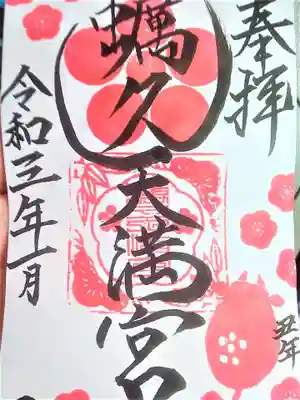 奉拝
蠣久天満宮
令和三年一月
丑年